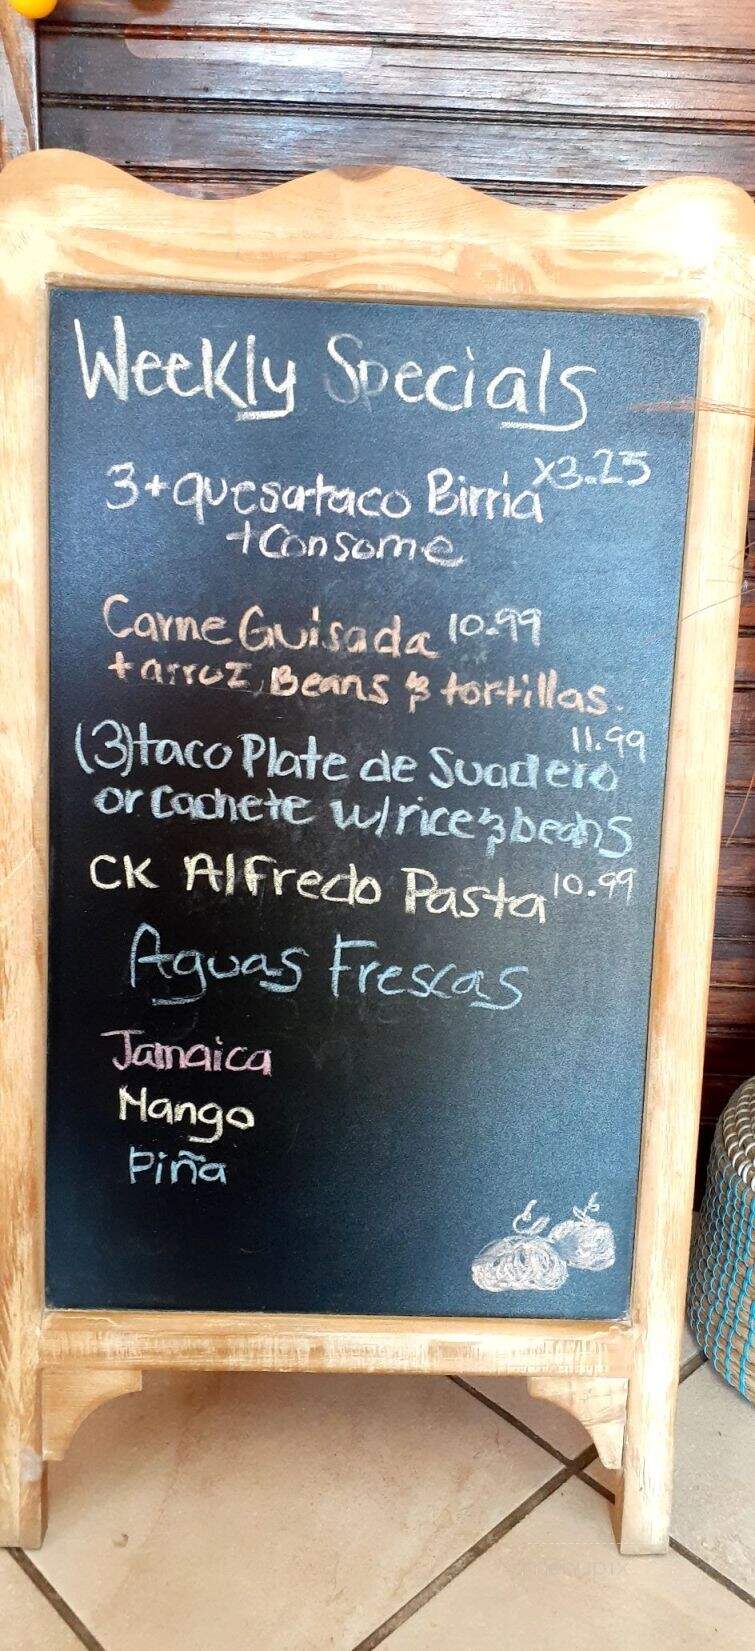 Weekly Specials
3+quesataco Birria x3.25
+Consome
Carne Guisada 10.99
+arroz, Beans & tortillas.
(3)taco Plate de Suadero 11.99
or Cachete w/rice & beans
CK Alfredo Pasta 10.99
Aguas Frescas
Jamaica
Mango
Piña
menupix